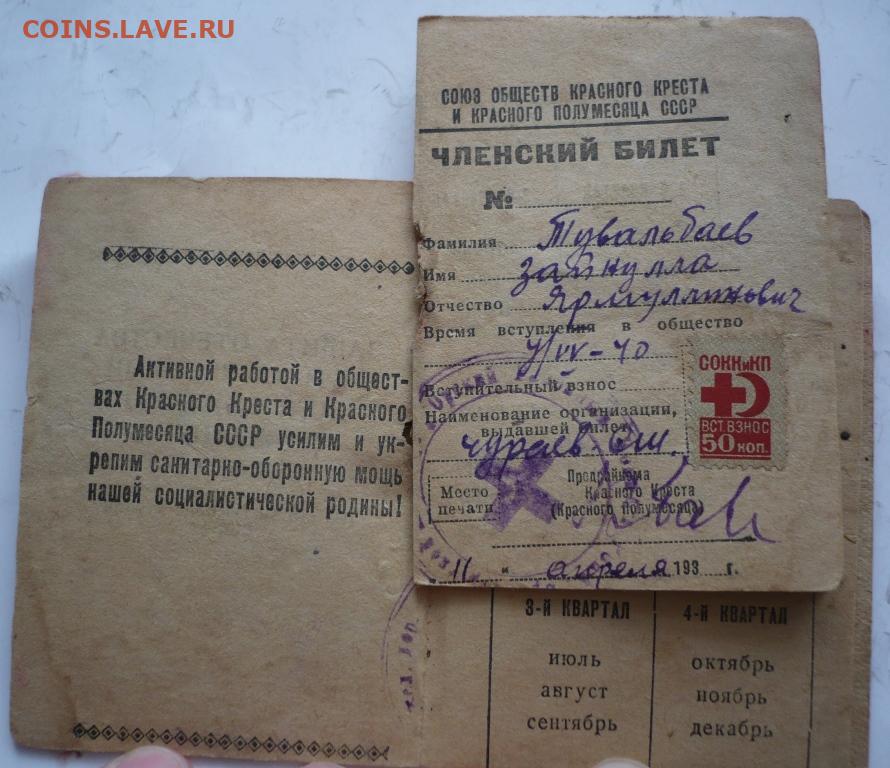 COINS.LAVE.RU
Активной работой в общест-
вах Красного Креста и Красного
Полумесяца СССР усилим и ук-
репим санитарно-оборонную мощь
нашей социалистической родины!
СОЮЗ ОБЩЕСТВ КРАСНОГО КРЕСТА
И КРАСНОГО ПОЛУМЕСЯЦА СССР
ЧЛЕНСКИЙ БИЛЕТ
№
Фамилия Тувальбаев
Имя Зайнулла
Отчество Ярмуллинович
Время вступления в общество
Вступительный взнос
Наименование организации,
выдавшей билет
СОКК и КП
ВСТ. ВЗНОС
50 коп.
Место
печати
Предрайкома
Красного Креста
(Красного Полумесяца)
"11" апреля 193 г.
3-Й КВАРТАЛ
июль
август
сентябрь
4-Й КВАРТАЛ
октябрь
ноябрь
декабрь